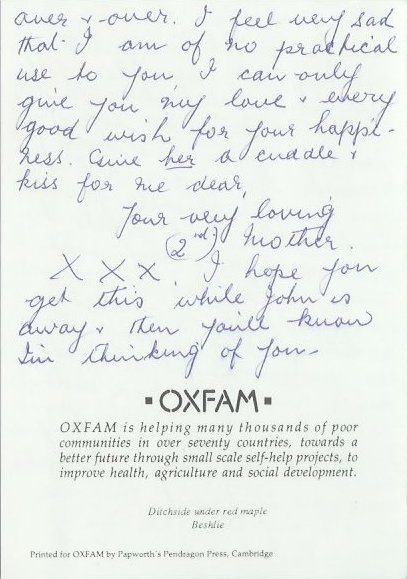 over & over. I feel very sad
that I am of no practical
use to you I can only
give you my love & every
good wish for your happi-
ness. Give her a cuddle &
kiss for me dear,
Your very loving
(2nd) Mother.
X X X . I hope you
get this while John is
away & then you'll know
I'm thinking of you-
▪ OXFAM ▪
OXFAM is helping many thousands of poor
communities in over seventy countries, towards a
better future through small scale self-help projects, to
improve health, agriculture and social development.
Ditchside under red maple
Beshlie
Printed for OXFAM by Papworth's Pendragon Press, Cambridge